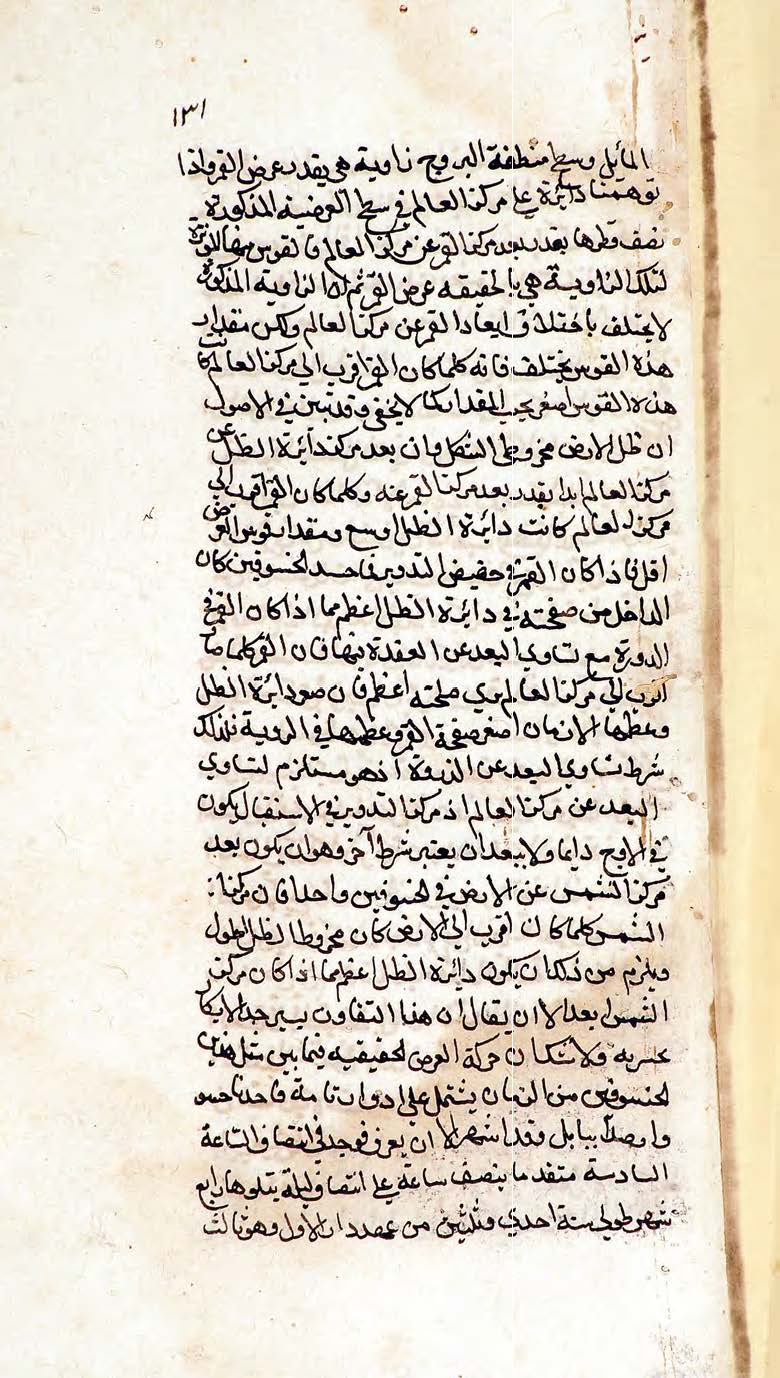 ١٣١
المائل وسطح منطقة البروج زاوية هى بقدر عرض القمر واذا
توهمنا دائرة على مركز العالم في سطح العرضية المذكورة
نصف قطرها بقدر بعد مركز القمر عن مركز العالم فالقوس منها الموترة
لتلك الزاوية هي بالحقيقه عرض القمر ثم ان الزاوية المذكورة
لا يختلف باختلاف ابعاد القمر عن مركز العالم ولكن مقدار
هذه القوس يختلف فانه كلما كان القمر اقرب الى مركز العالم كانت
هذه القوس اصغر بحسب المقدار كما لا يخفى وقد تبين في الاصول
ان ظل الارض مخروطي الشكل وان بعد مركز دائرة الظل عن
مركز العالم ابدا بقدر بعد مركز القمر عنه وكلما كان القمر اقرب الى
مركز العالم كانت دائرة الظل اوسع ومقدار قوس العرض
اقل فاذا كان القمر في حضيض التدوير في احد الخسوفين كان
الداخل من صفحته في دائرة الظل اعظم مما اذا كان القمر في
الذروة مع تساوي البعد عن العقدة فيها فان القمر كلما صار
اقرب الى مركز العالم يرى صفحته اعظم فان صغر دائرة الظل
وعظمها لازمان لصغر صفحة القمر وعظمها في الروية فلذلك
شرط تساوي البعد عن الذروة اذ هو مستلزم لتساوي
البعد عن مركز العالم اذ مركز التدوير في الاستقبال يكون
في الاوج دايما ولا يبعد ان يعتبر شرط آخر وهو ان يكون بعد
مركز الشمس عن الارض في الخسوفين واحدا فان مركز
الشمس كلما كان اقرب الى الارض كان مخروط الظل اطول
ويلزم من ذلك ان يكون دائرة الظل اعظم مما اذا كان مركز
الشمس ابعد الا ان يقال ان هذا التفاوت يسير جدا لا يكاد
يحس به ولا شك ان حركة العرض الحقيقيه فيما بين مثل هذين
الخسوفين من الزمان يشتمل على ادوار تامة فاحدنا خسوفا
وا رصد ببابل وقد اشهر الا ان يعرف فوجد في انتصاف الساعة
السادسة متقدما بنصف ساعة على انتصاف ليلة يتلوها رابع
شهر طوبى سنة احدى وثلثين من دارا الاول وهو ثالث